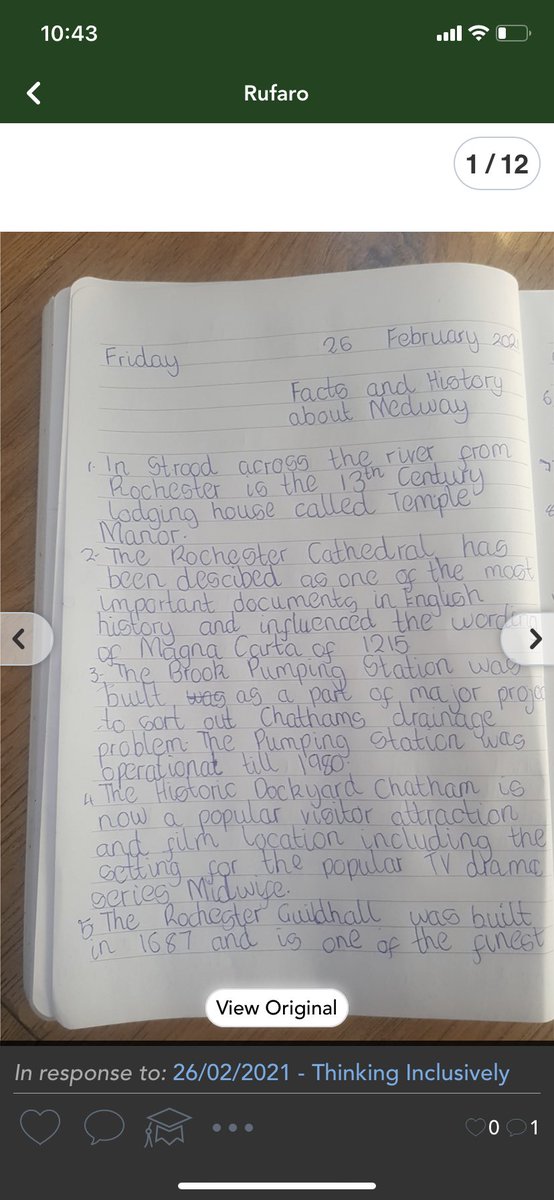 10:43
Rufaro
1 / 12
Friday 26 February 202
Facts and History
about Medway
1. In Strood across the river from
Rochester is the 13th Century
lodging house called Temple
Manor.
2. The Rochester Cathedral has
been descibed as one of the most
important documents in English
history and influenced the wording
of Magna Carta of 1215
3. The Brook Pumping Station was
built was as a part of major projec
to sort out Chathams drainage
problem. The Pumping station was
operational till 1980.
4. The Historic Dockyard Chatham is
now a popular visitor attraction
and film location including the
setting for the popular TV drama
series Midwife.
5. The Rochester Guildhall was built
in 1687 and is one of the finest
View Original
In response to: 26/02/2021 - Thinking Inclusively
0 1